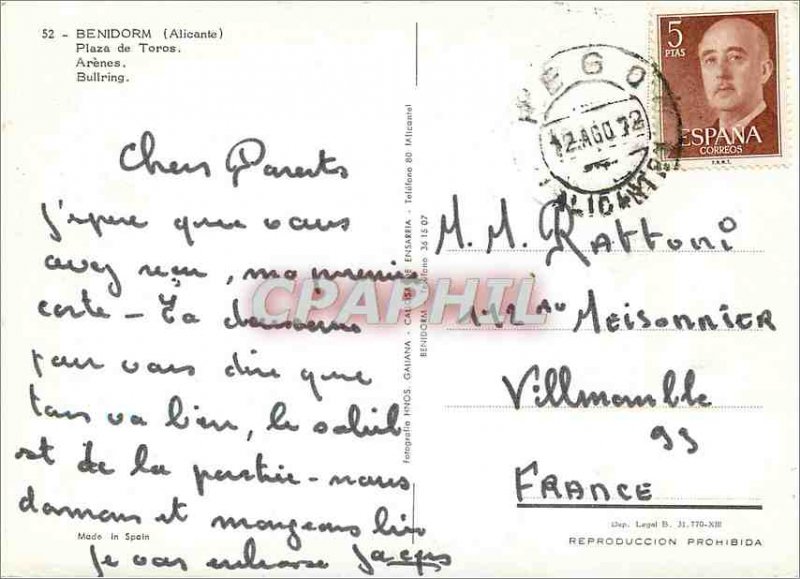 52 - BENIDORM (Alicante)
Plaza de Toros.
Arènes.
Bullring.
5
PTAS
ESPAÑA
CORREOS
F.N.M.T.
PEGO
12.AGO.72
ALICANTE
Chers Parents
J'espere que vous
avez reçu, ma premie
carte -
pour vous dire que
tous va bien, le soleil
est de la partie - nous
dormons et mangeons bien
je vous embrasse Jacques
M. M. Rattoni
112 Au MEISONNIER
Villmomble
93
FRANCE
Fotografía HNOS. GALIANA - CALLOSA DE ENSARRIA - Teléfono 80 (Alicante)
BENIDORM - Teléfono 36 15 07
CPAPHIL
Made in Spain
Dep. Legal B. 31.770-XIII
REPRODUCCION PROHIBIDA